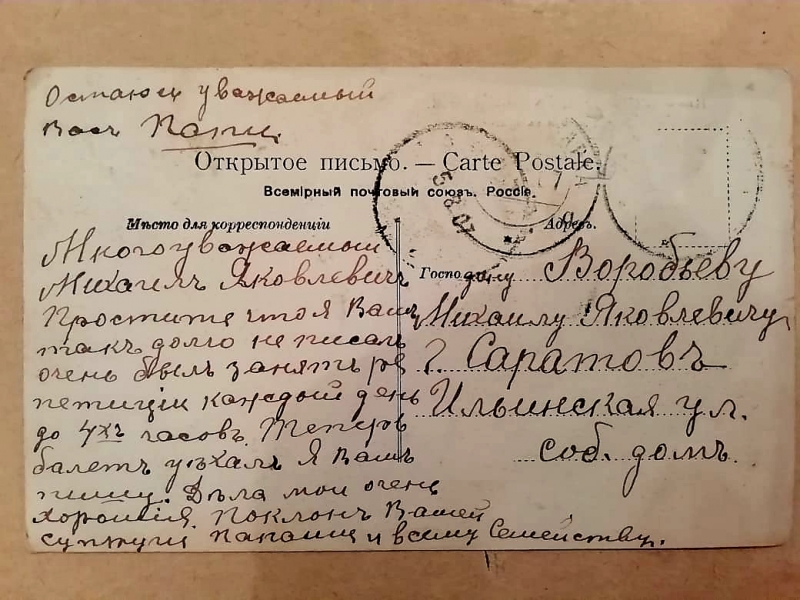 Остаюсь уважаемый
Васъ Папиц
Открытое письмо. — Carte Postale.
Всемірный почтовый союзъ. Россія.
Мѣсто для корреспонденціи
Адресъ.
Многоуважаемый
Михаилъ Яковлевичъ
Простите что я Вамъ
такъ долго не писалъ
очень былъ занятъ ре
петиціи каждый день
до 4хъ часовъ. Теперь
балетъ уѣхалъ я Вамъ
пишу. Дѣла мои очень
хорошія. Поклонъ Вашей
супруги папаши и всему Семейству.
Господину Воробьеву
Михаилу Яковлевичу
г. Саратовъ
Ильинская ул.
соб. домъ.